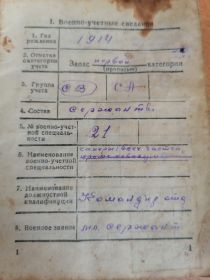 I. Военно-учетные сведения
1. Год рождения
1914
2. Отметка о категории учета
Запас первой категории
(прописью)
3. Группа учета
СВ СА
4. Состав
Сержантс
5. № военно-учетной специальности
21
6. Наименование военно-учетной специальности
саперы всех частей
7. Наименование должностной квалификации
Командир отд
8. Военное звание
мл. Сержант
1
1